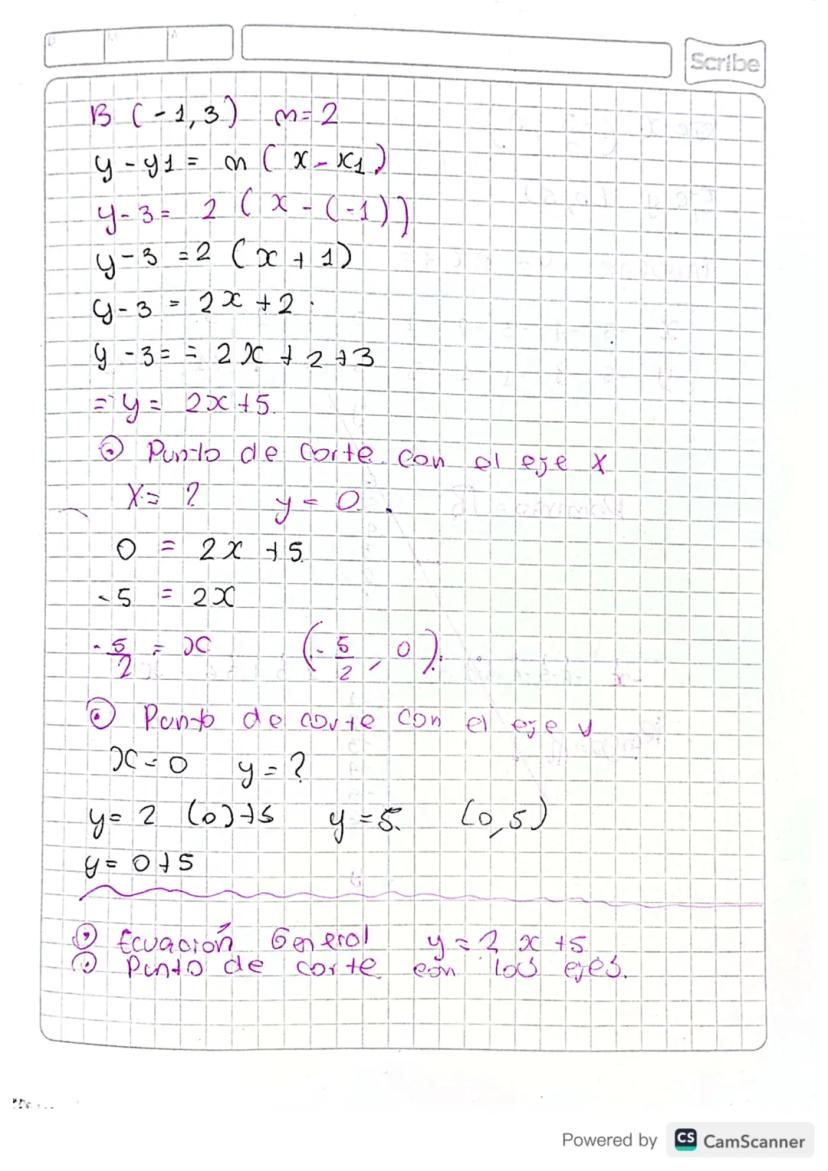 Scribe
B (-1,3) m=2
y - y1 = m ( x - x1 )
y-3 = 2 ( x - (-1))
y-3 = 2 (x + 1)
y-3 = 2x + 2
y -3 = = 2x + 2 +3
= y = 2x+5
Punto de corte con el eje x
X = ? y = 0
0 = 2x +5
-5 = 2x
-5/2 = x (-5/2, 0)
Punto de corte con el eje y
x=0 y = ?
y= 2 (0)+5 y=5 (0,5)
y= 0+5
Ecuación General y = 2 x +5
Punto de corte con los ejes.
Powered by CS CamScanner